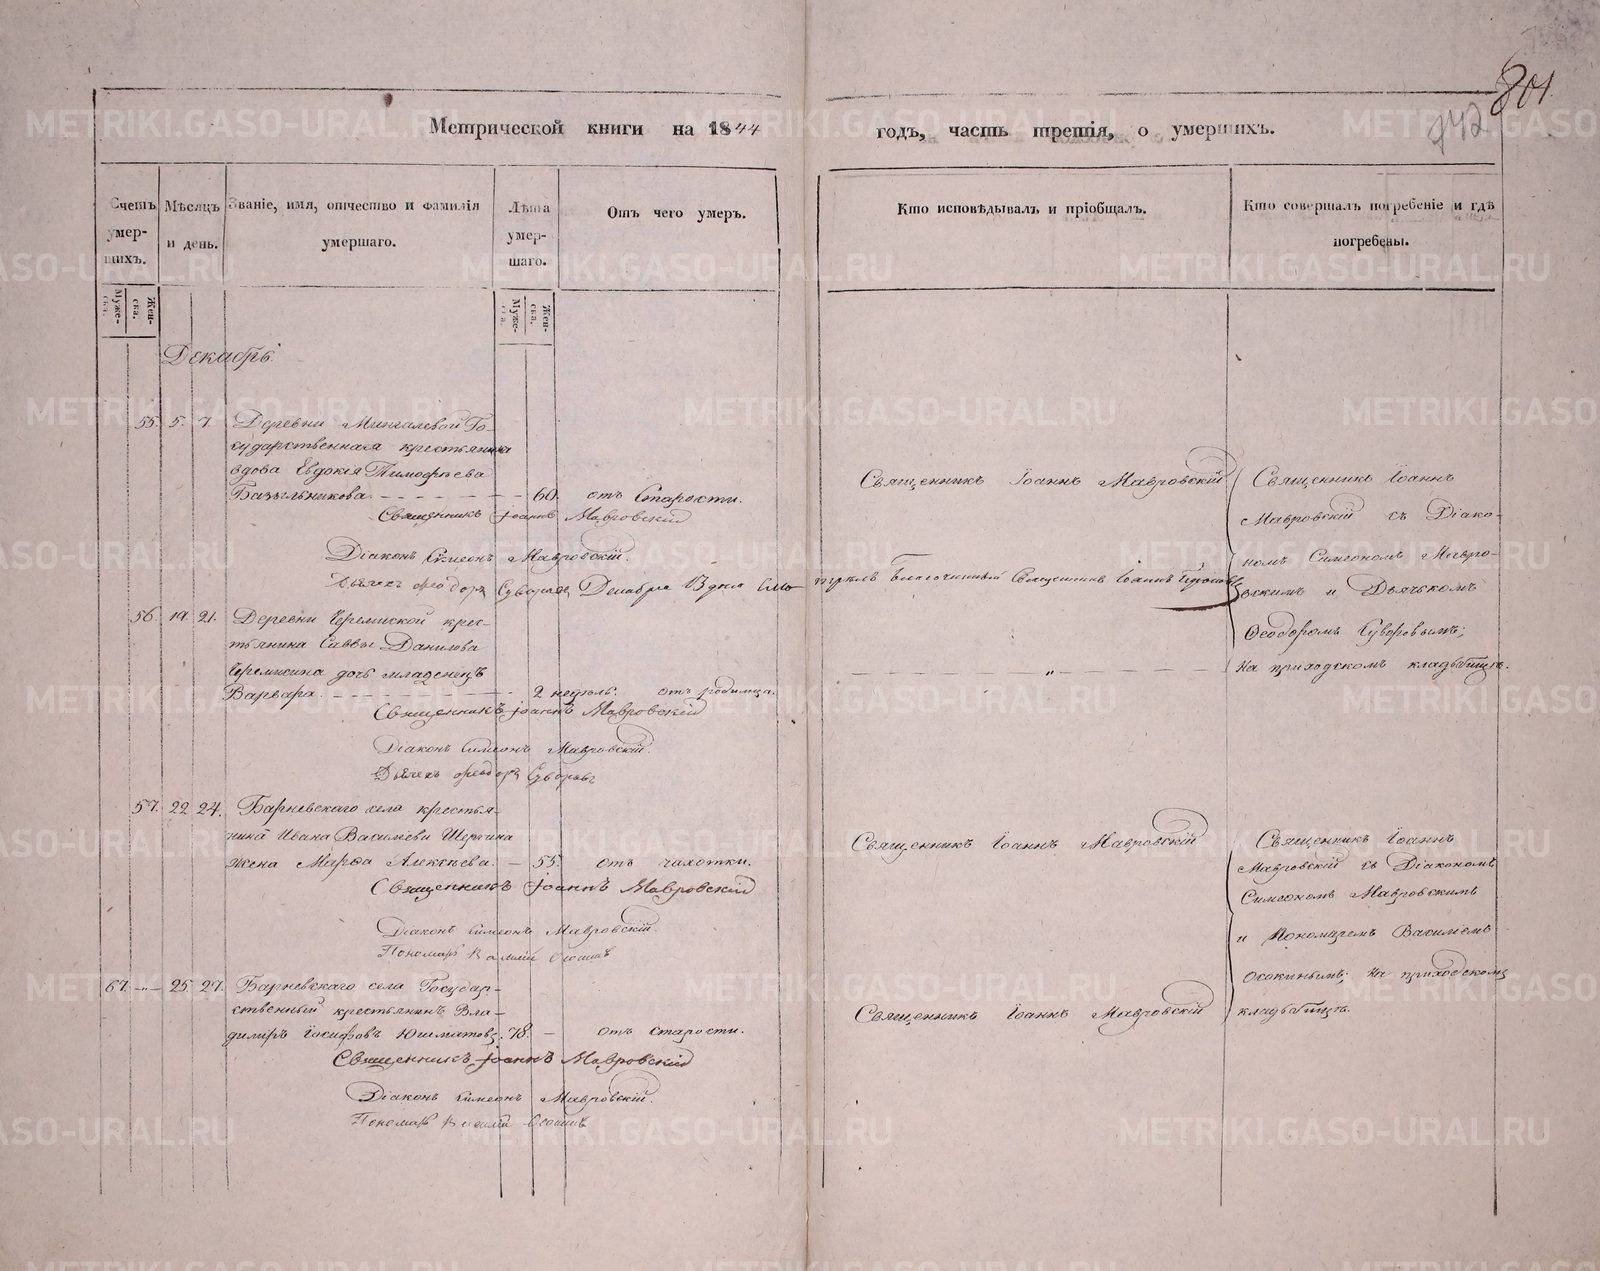 801
742
Метрической книги на 1844 годъ, часть третія, о умершихъ.
Счетъ умер-шихъ.
Мѣсяцъ и день.
Званіе, имя, отчество и фамилія умершаго.
Лѣта умер-шаго.
Отъ чего умеръ.
Кто исповѣдывалъ и пріобщалъ.
Кто совершалъ погребеніе и гдѣ погребены.
Муже-ска.
Жен-ска.
Муже-ска.
Жен-ска.
Декабрь.
55. 5. 7. Деревни Мингалевой Го-
сударственнаго крестьянина
вдова Евдокія Тимофѣева
Базыльникова. 60. отъ Старости.
Священникъ Іоаннъ Мавровскій
Священникъ Іоаннъ Мавровскій
Діаконъ Симеонъ Мавровскій.
Дьячекъ Ѳеодоръ Суворовъ Декабря
Благочинный Священникъ Іоаннъ
56. 19. 21. Деревни Черемиской крес-
тьянина Саввы Данилова
Черемисина дочь младенецъ
Варвара. 2 недѣль. отъ родимца.
Священникъ Іоаннъ Мавровскій
Діаконъ Симеонъ Мавровскій.
Дьячекъ Ѳеодоръ Суворовъ
Священникъ Іоаннъ
Мавровскій съ Діако-
номъ Симеономъ Мавро-
вскимъ и Дьячкомъ
Ѳеодоромъ Суворовымъ;
На приходскомъ кладбищѣ.
57. 22. 24. Барневскаго села крестья-
нина Ивана Васильева
жена Марѳа Алексѣева. 55. отъ чахотки.
Священникъ Іоаннъ Мавровскій
Священникъ Іоаннъ Мавровскій
Діаконъ Симеонъ Мавровскій.
Пономарь Василій Осокинъ
67. 25. 27. Барневскаго села Государ-
ственный крестьянинъ Вла-
димиръ Іосифовъ 78. отъ старости.
Священникъ Іоаннъ Мавровскій
Священникъ Іоаннъ Мавровскій
Діаконъ Симеонъ Мавровскій.
Пономарь Василій Осокинъ
Священникъ Іоаннъ
Мавровскій съ Діакономъ
Симеономъ Мавровскимъ
и Пономаремъ Василіемъ
Осокинымъ; На приходскомъ
кладбищѣ.
METRIKI.GASO-URAL.RU